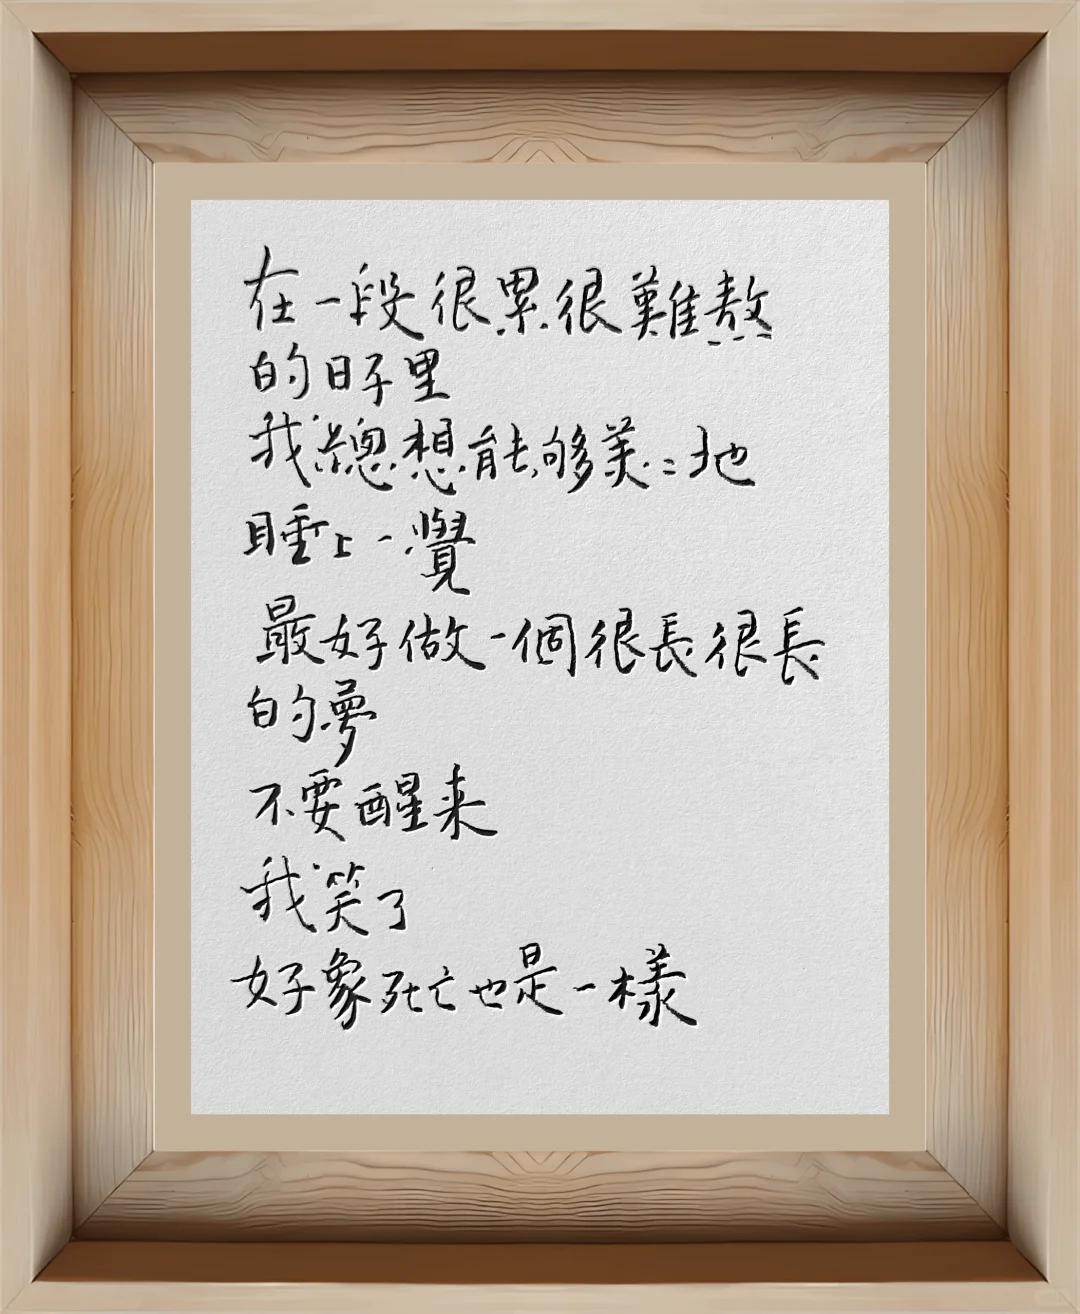 在一段很累很難熬
的日子里
我總想能够美=地
睡上一覺
最好做一個很長很長
的夢
不要醒来
我笑了
好象死亡也是一樣